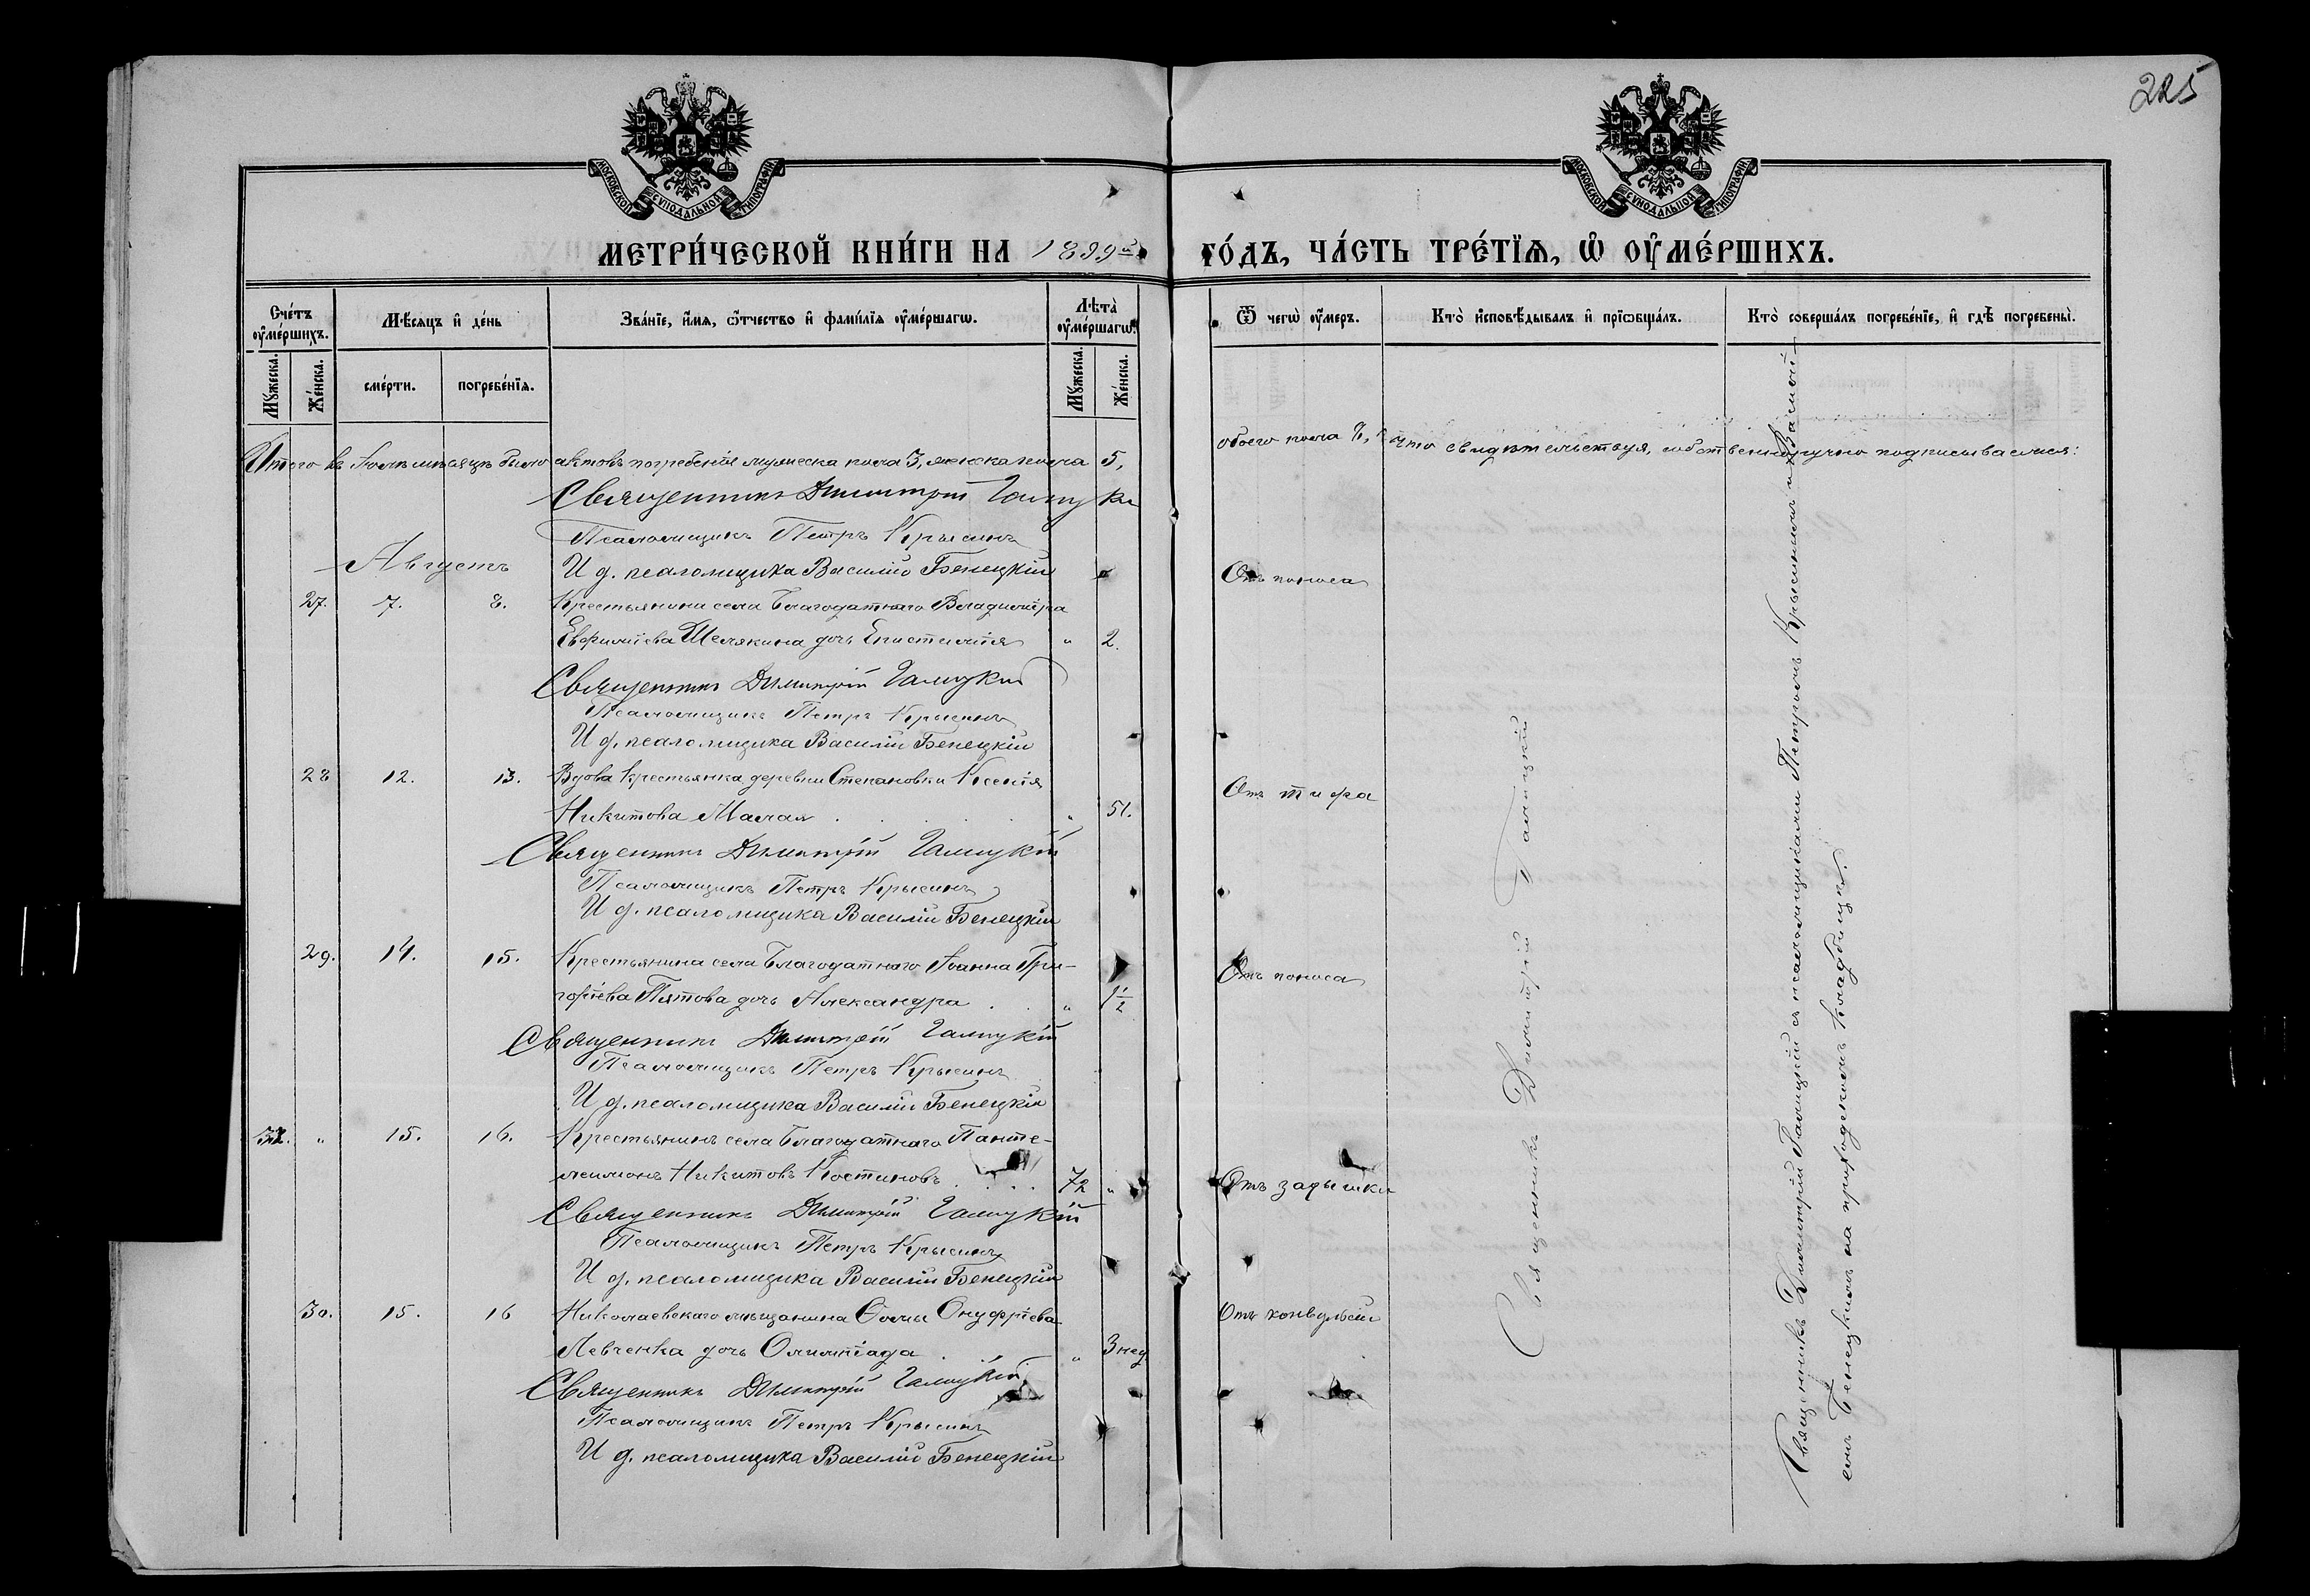 225
МОСКОВСКОЙ СѴНОДАЛЬНОЙ ТИПОГРАФІИ
МОСКОВСКОЙ СѴНОДАЛЬНОЙ ТИПОГРАФІИ
МЕТРИ́ЧЕСКОЙ КНИ́ГИ НА 1899й ГО́ДЪ, ЧА́СТЬ ТРЕ́ТЇѦ, Ѡ ОУМЕ́РШИХЪ.
Сче́тъ оумершихъ.
Мѣсяцъ и де́нь
Зва́нїе, и́мя, ѻтчество и фами́лїя оуме́ршагѡ.
Лѣта̀ оуме́ршагѡ.
Ѿ чегѡ̀ оумеръ.
Кто̀ исповѣ́дывалъ и прїѡбща́лъ.
Кто̀ соверша́лъ погребе́нїе, и гдѣ̀ погребены̀.
Мꙋжеска.
Же́нска.
сме́рти.
погребе́нїя.
Мꙋжеска.
Же́нска.
Итого въ Іюлѣ мѣсяцѣ было актовъ погребенія мужеска пола 3, женска пола 5,
обоего пола 8, что свидѣтельствуя, собственноручно подписываемся:
Священникъ Димитрій Галицкій
Псаломщикъ Петръ Крысинъ
Августъ
И д. псаломщика Василій Бенецкій
27. 7. 8. Крестьянина села Благодатнаго Владиміра
Отъ поноса
Евфиміева Шелякина дочь Епистимія " 2.
Священникъ Димитрій Галицкій
Псаломщикъ Петръ Крысинъ
И д. псаломщика Василій Бенецкій
28 12. 13. Вдова крестьянка деревни Степановки Ксенія
Отъ тифа
Никитова Малая " 51.
Священникъ Димитрій Галицкій
Псаломщикъ Петръ Крысинъ
И д. псаломщика Василій Бенецкій
29. 14. 15. Крестьянина села Благодатнаго Іоанна Гри-
Отъ поноса
горіева Пятова дочь Александра " 1½
Священникъ Димитрій Галицкій
Псаломщикъ Петръ Крысинъ
И д. псаломщика Василій Бенецкій
" 15. 16. Крестьянинъ села Благодатнаго Панте-
леимонъ Никитовъ Костиновъ 72 "
Отъ задышки
Священникъ Димитрій Галицкій
Псаломщикъ Петръ Крысинъ
И д. псаломщика Василій Бенецкій
30. 15. 16 Николаевскаго мѣщанина Ѳомы Онуфріева
Отъ конвульсіи
Левченка дочь Олимпіада " 3 нед
Священникъ Димитрій Галицкій
Псаломщикъ Петръ Крысинъ
И д. псаломщика Василій Бенецкій
Священникъ Димитрій Галицкій
Священникъ Димитрій Галицкій съ псаломщиками Петромъ Крысинымъ и Василі-
емъ Бенецкимъ на приходскомъ кладбищѣ.